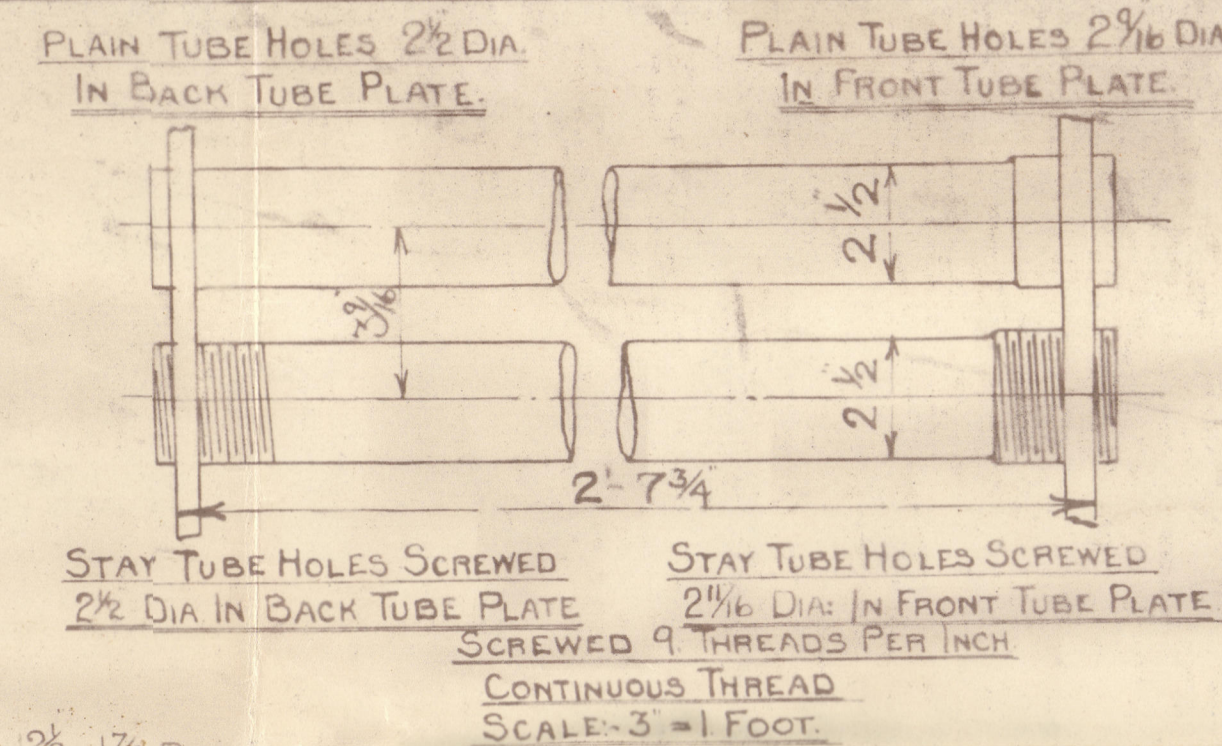 PLAIN TUBE HOLES 2½ DIA.
IN BACK TUBE PLATE.
PLAIN TUBE HOLES 2 9/16 DIA
IN FRONT TUBE PLATE.
2½"
3 9/16"
2½"
2'-7¾"
STAY TUBE HOLES SCREWED
2½ DIA IN BACK TUBE PLATE
STAY TUBE HOLES SCREWED
2 11/16 DIA: IN FRONT TUBE PLATE
SCREWED 9 THREADS PER INCH
CONTINUOUS THREAD
SCALE:- 3" = 1 FOOT.